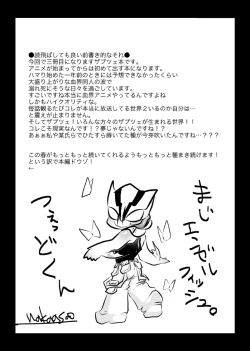 ●読飛ばしても良い前書き的なそれ●
今回で三冊目になりますザプツェ本です。
アニメが始まってからは初めて出す本になります。
ハマり始めた一年前のときには予想できなかったくらい
大盛り上がりな血界同人の波で
溺れ死にそうな日々を過ごしています。
すごいですね本当に血界アニメやってるんですよね
しかもハイクオリティな。
毎話観るたびコレが本当に放送してる世界2いるのか自分は…
と震えが止まりません。
そしてザプツェ!いろんな方々のザプツェが生まれる世界!!
コレこそ現実なんです!?夢じゃないんですね!?
あぁぁ私や某氏らでひたすら蒔いてた種が今芽吹いたんですね…???
この春がもっともっと続いてくれるようもっともっと種まき続けます!
という訳で本編ドウゾ!
←
まじエンゼルフィッシュ。
つぇっどくん